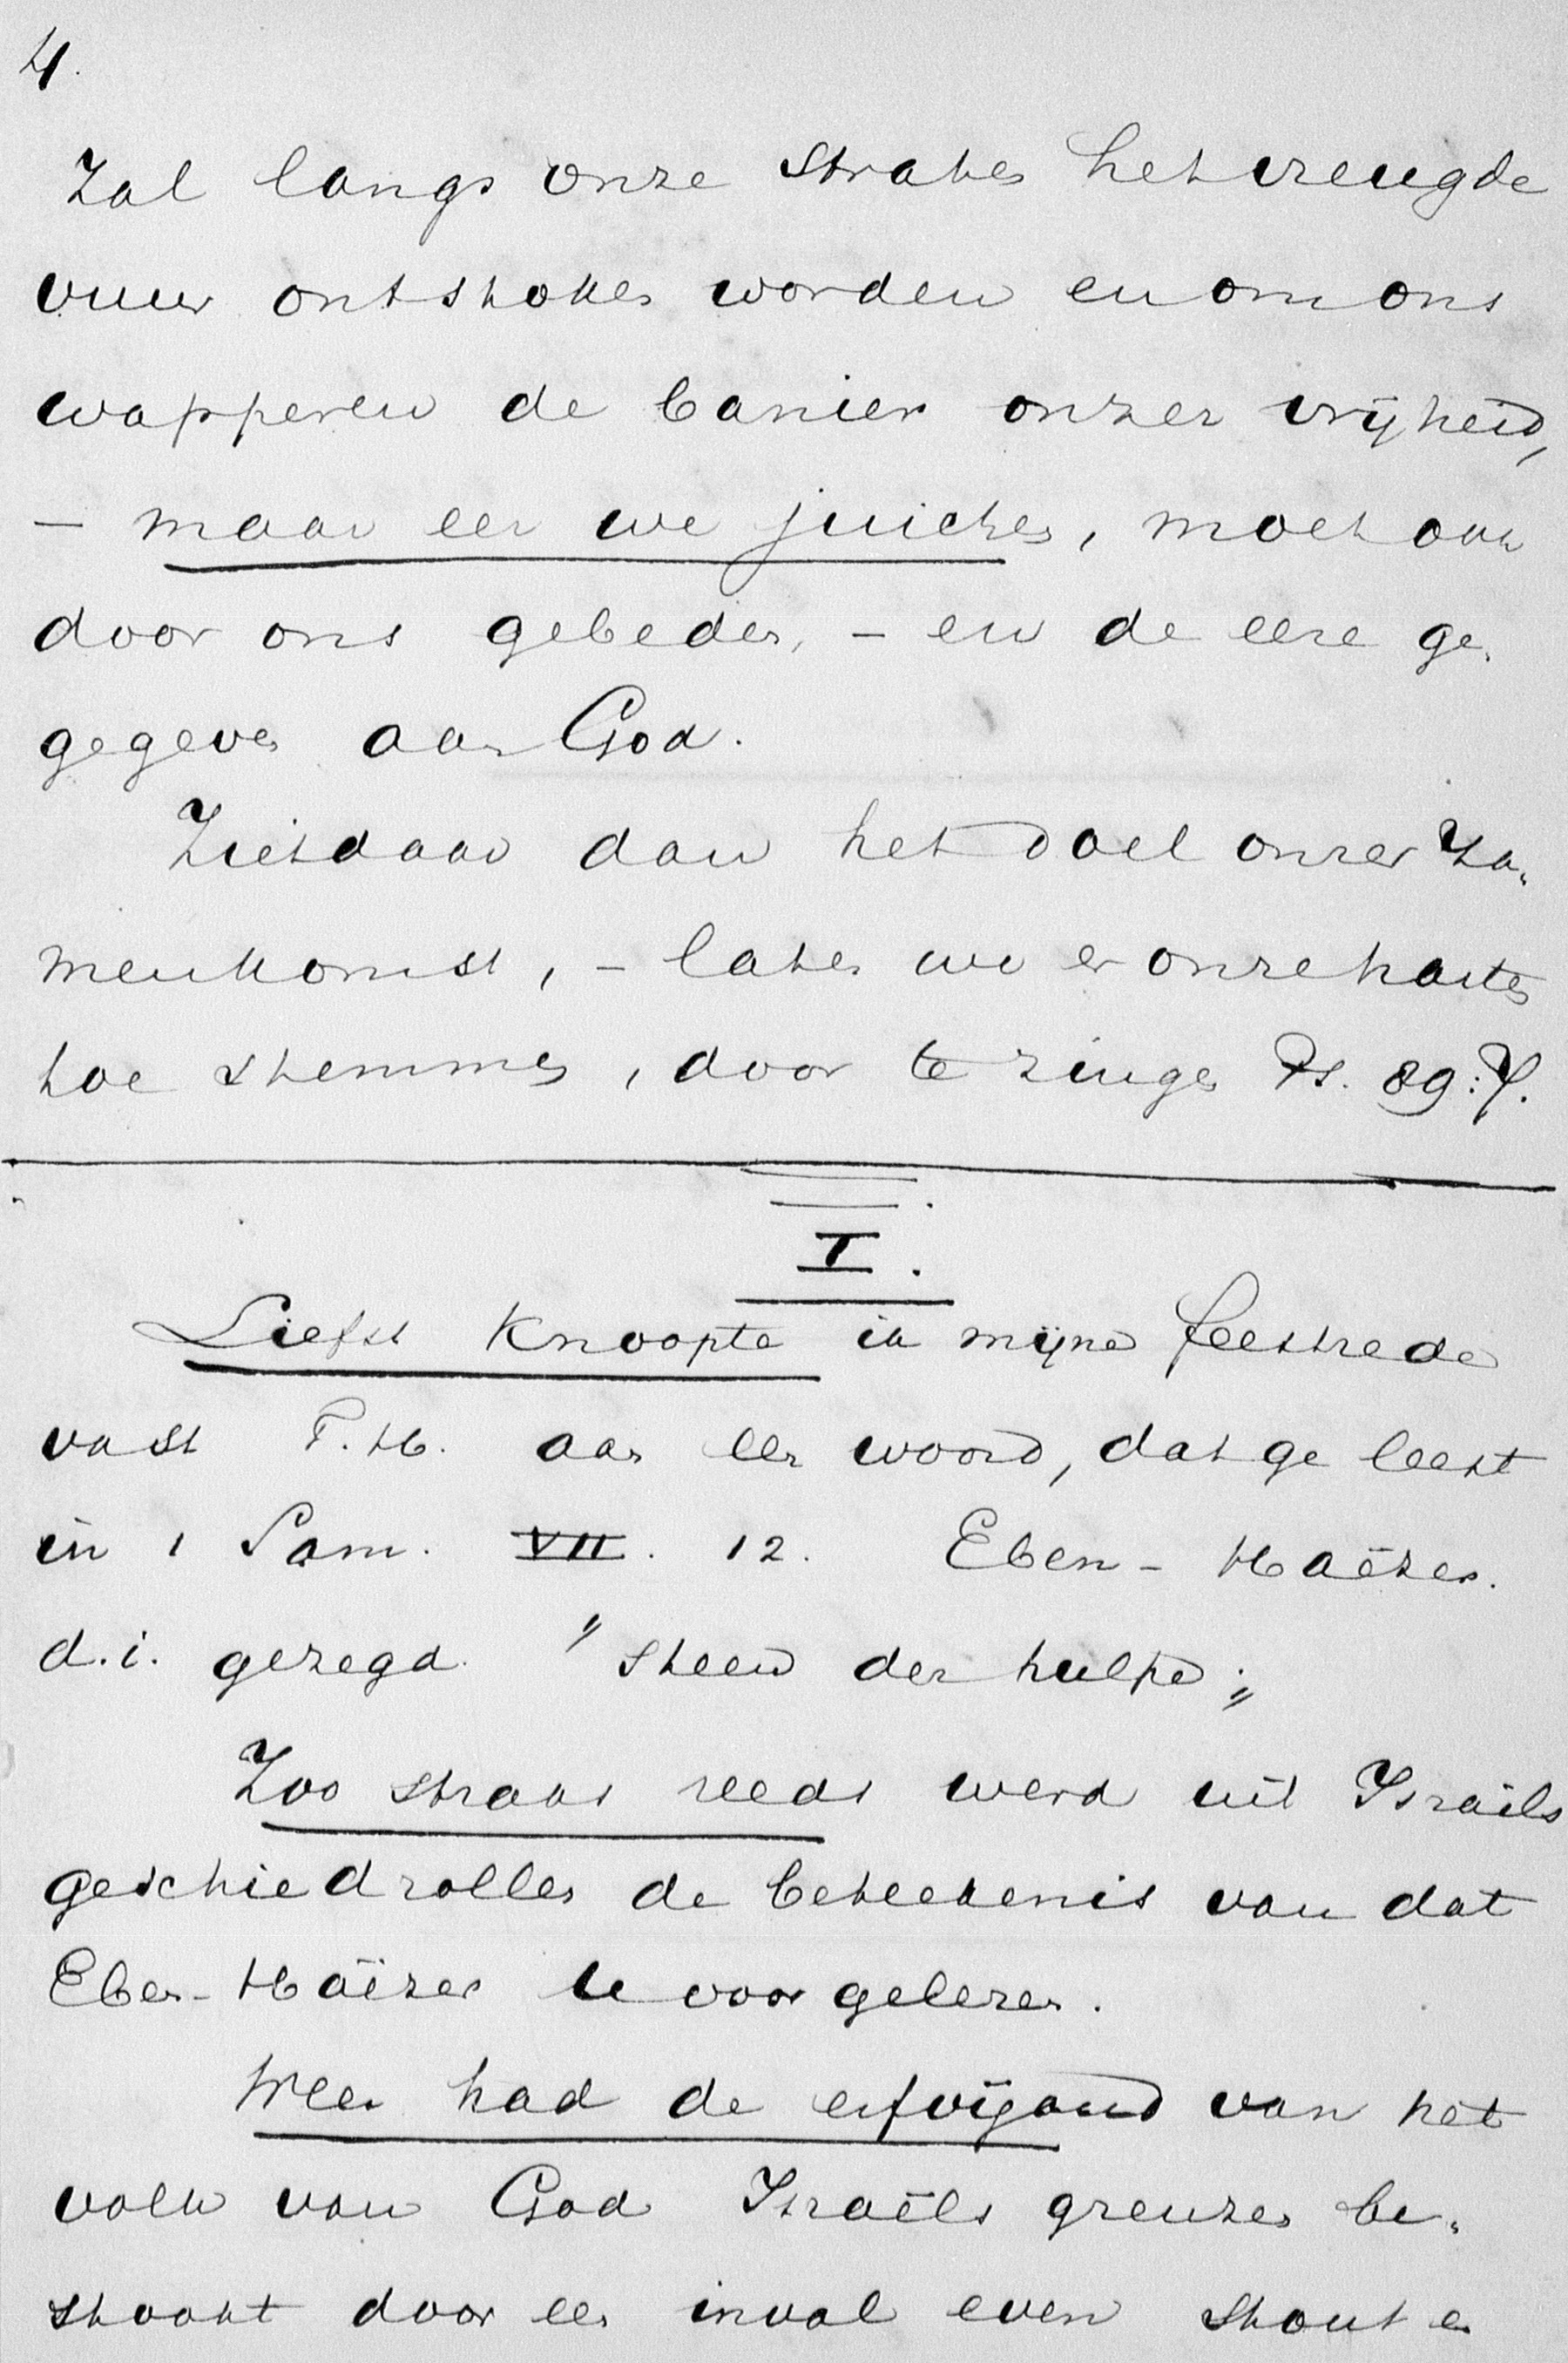 4.
Zal langs onze straten het vreugde
vuur ontstoken worden en om ons
wapperen de banier onzer vrijheid,
- maar eer we juichen, moet ook
door ons gebeden, - en de eere ge-
gegeven aan God.
Ziet daar dan het doel onzer za-
menkomst, - laten we er onze harten
toe stemmen, door te zingen Ps. 89:7.
I.
Liefst knoopte ik mijne feestrede
vast T.H. aan een woord, dat ge leest
in 1 Sam. VII. 12. Eben-Haëzer.
d.i. gezegd. "Steen der hulpe;"
Zoo straks reeds werd uit Israëls
geschiedrollen de beteekenis van dat
Eben-Haëzer u voorgelezen.
Weer had de erfvijand van het
volk van God Israëls grenzen be-
stookt door een inval even stout en